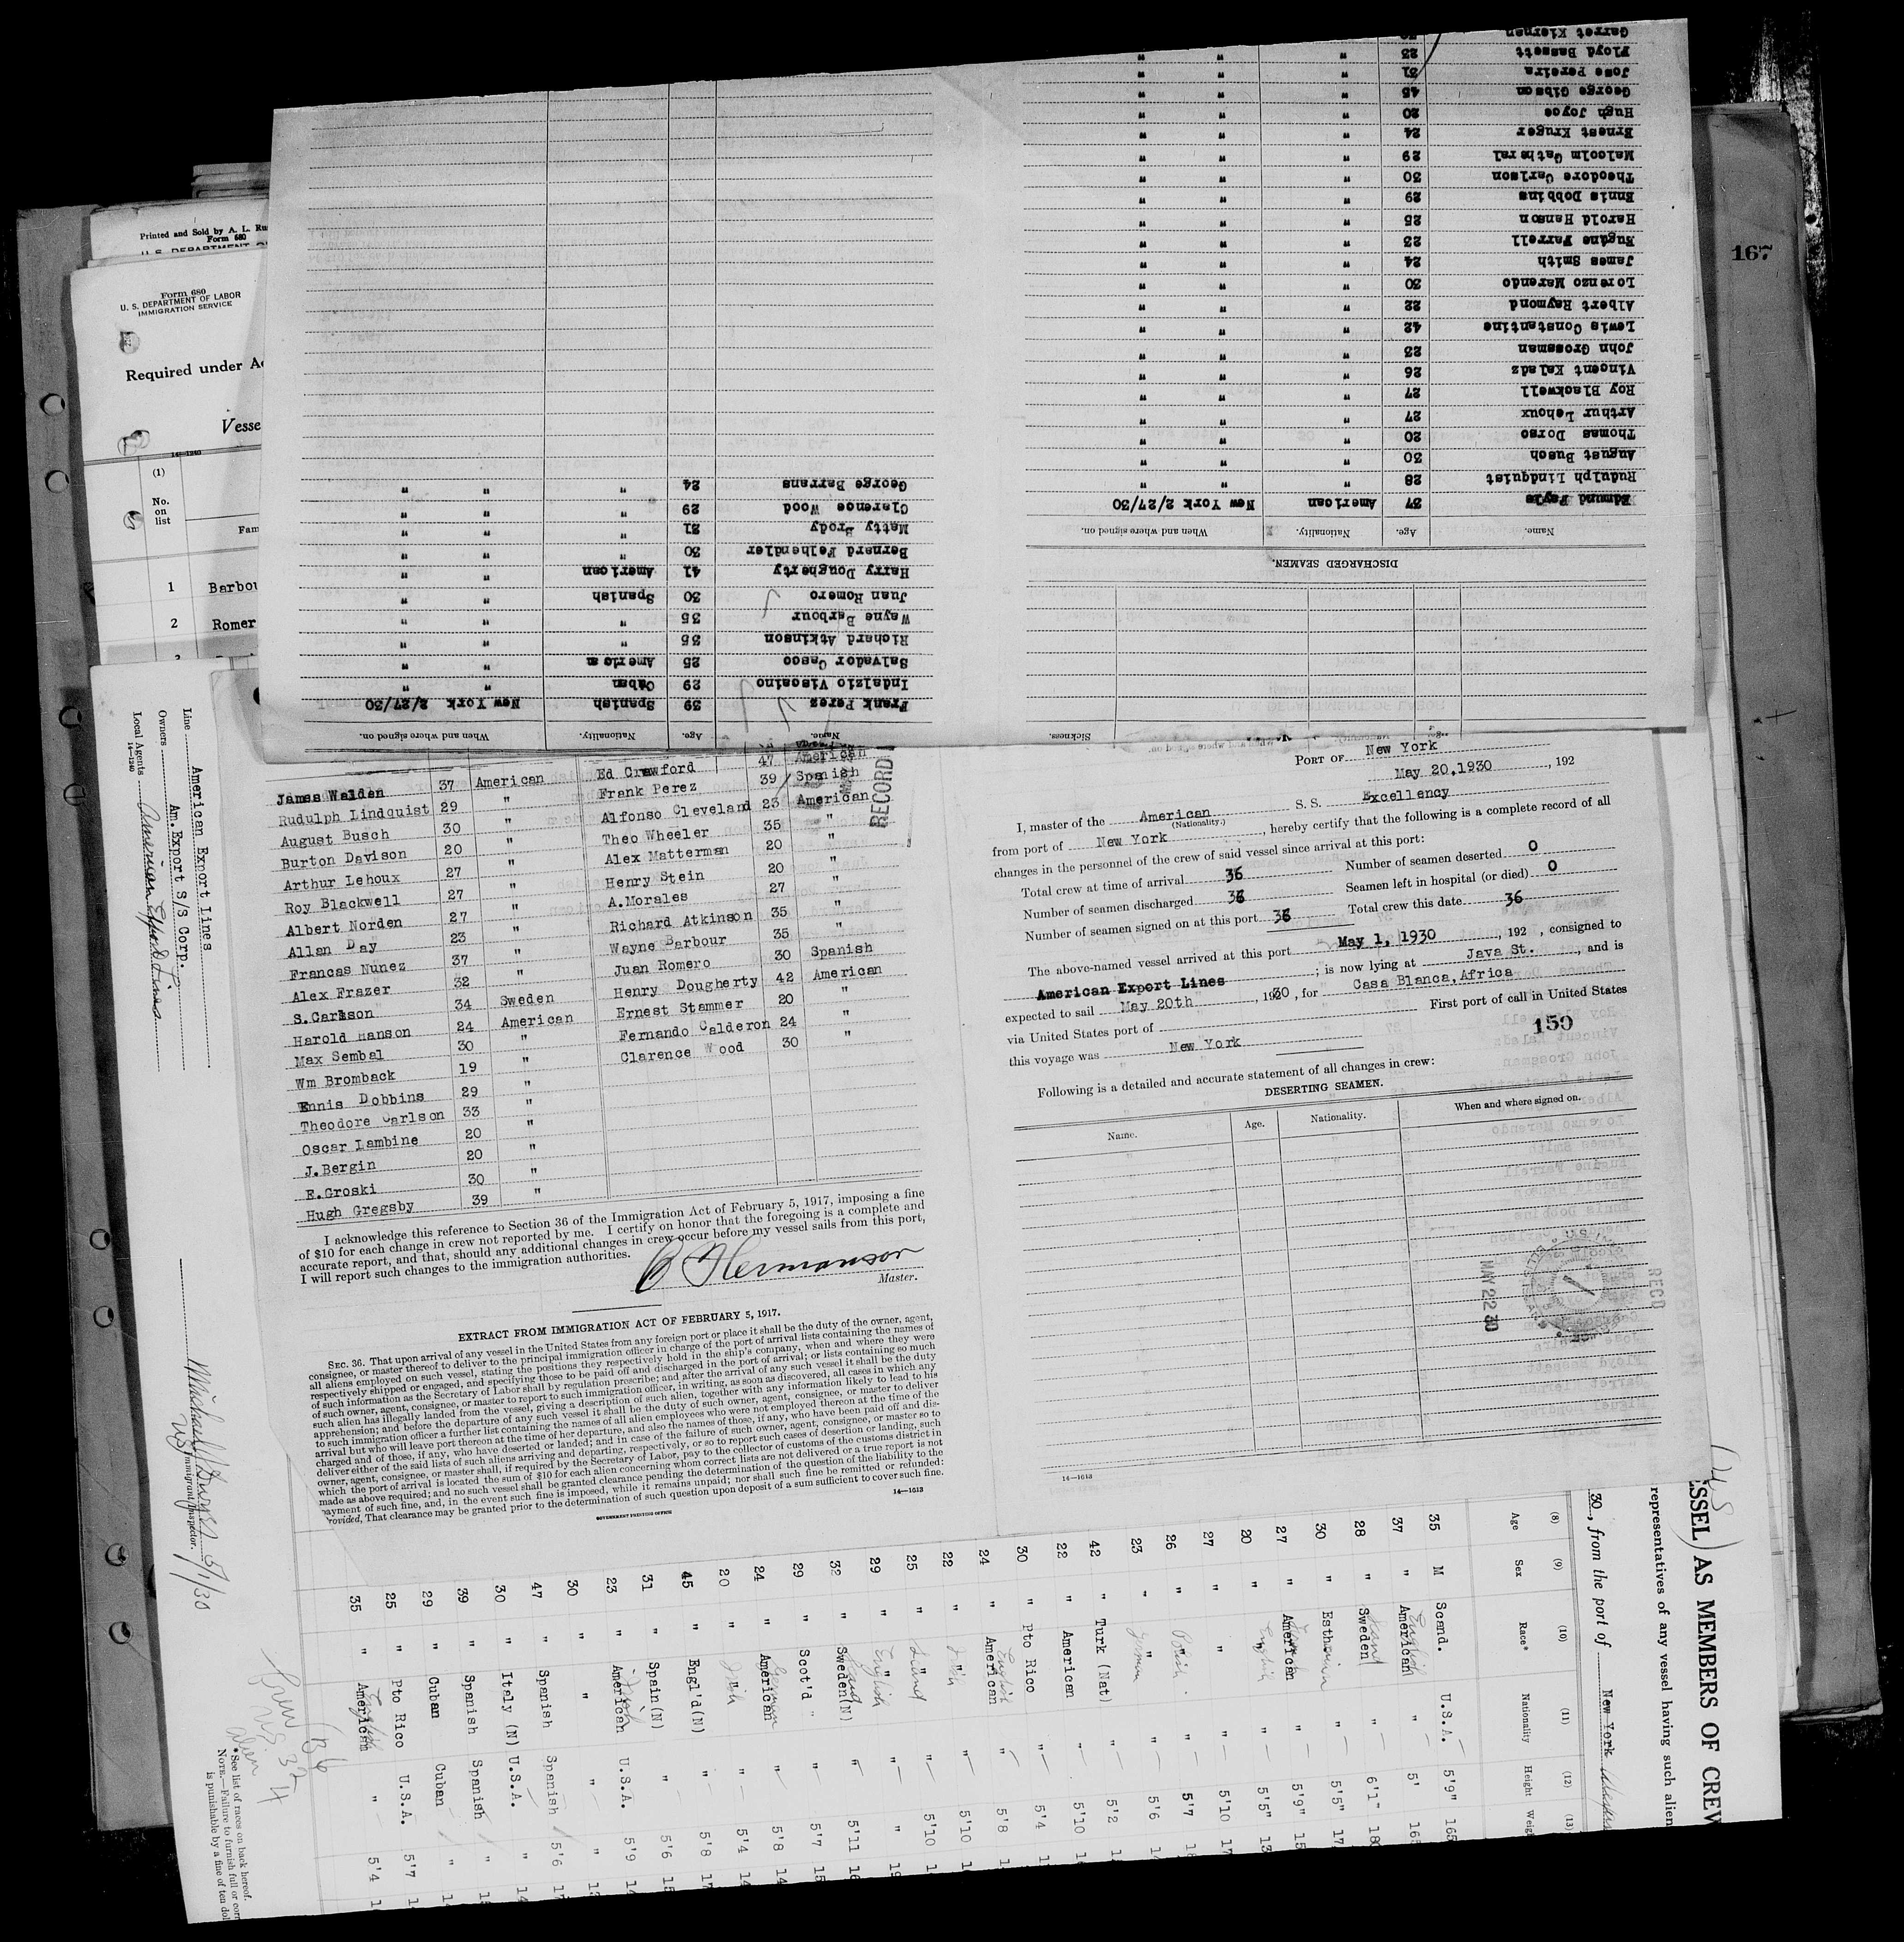 167
Printed and Sold by A. L.
Form 680
Form 680
U. S. DEPARTMENT OF LABOR
IMMIGRATION SERVICE
Required under
14—1240
(1)
No.
on
list
1 Barbou
2 Romer
Garret Kiernan
Floyd Bassett 23 " " "
Jose Pereira 31 " " "
George Gibson 45 " " "
Hugh Joyce 20 " " "
Ernest Kruger 24 " " "
Malcolm Gatheral 29 " " "
Theodore Carlson 30 " " "
Ennis Dobbins 29 " " "
Harold Hanson 25 " " "
Eugene Farrell 23 " " "
James Smith 24 " " "
Lorenzo Marendo 30 " " "
Albert Raymond 22 " " "
Lewis Constantine 42 " " "
John Grossman 23 " " "
Vincent Kaladz 26 " " "
Roy Blackwell 27 " " "
Arthur Lehoux 27 " " "
Thomas Dorso 20 " " "
August Busch 30 " " "
Rudulph Lindquist 28 " " "
Edmund Fayle 37 American New York 2/27/30
Name. Age. Nationality. When and where signed on.
DISCHARGED SEAMEN.
Sickness.
George Barrans 24 " " "
Clarence Wood 29 " " "
Matty Brody 21 " " "
Bernard Felhendler 30 " " "
Harry Dougherty 41 American " "
Juan Romero 30 Spanish " "
Wayne Barbour 35 " " "
Richard Atkinson 35 " " "
Salvador Casco 25 American " "
Indalzio Viscaino 29 Cuban " "
Frank Perez 39 Spanish New York 2/27/30
Name. Age. Nationality. When and where signed on.
James Walden 37 American Ed Crawford 47 American
Rudulph Lindquist 29 " Frank Perez 39 Spanish
August Busch 30 " Alfonso Cleveland 23 American
Burton Davison 20 " Theo Wheeler 35 "
Arthur Lehoux 27 " Alex Matterman 20 "
Roy Blackwell 27 " Henry Stein 20 "
Albert Norden 27 " A.Morales 27 "
Allan Day 23 " Richard Atkinson 35 "
Francas Nunez 37 " Wayne Barbour 35 "
Alex Frazer 32 " Juan Romero 30 Spanish
S.Carlson 34 Sweden Henry Dougherty 42 American
Harold Hanson 24 American Ernest Stammer 20 "
Max Sembal 30 " Fernando Calderon 24 "
Wm Bromback 19 " Clarence Wood 30 "
Ennis Dobbins 29 "
Theodore Carlson 33 "
Oscar Lambine 20 "
J.Bergin 20 "
E.Groski 30 "
Hugh Gregsby 39 "
RECORD
I acknowledge this reference to Section 36 of the Immigration Act of February 5, 1917, imposing a fine
of $10 for each change in crew not reported by me. I certify on honor that the foregoing is a complete and
accurate report, and that, should any additional changes in crew occur before my vessel sails from this port,
I will report such changes to the immigration authorities.
Hermanson
Master.
EXTRACT FROM IMMIGRATION ACT OF FEBRUARY 5, 1917.
SEC. 36. That upon arrival of any vessel in the United States from any foreign port or place it shall be the duty of the owner, agent,
consignee, or master thereof to deliver to the principal immigration officer in charge of the port of arrival lists containing the names of
all aliens employed on such vessel, stating the positions they respectively hold in the ship's company, when and where they were
respectively shipped or engaged, and specifying those to be paid off and discharged in the port of arrival; or lists containing so much
of such information as the Secretary of Labor shall by regulation prescribe; and after the arrival of any such vessel it shall be the duty
of such owner, agent, consignee, or master to report to such immigration officer, in writing, as soon as discovered, all cases in which any
such alien has illegally landed from the vessel, giving a description of such alien, together with any information likely to lead to his
apprehension; and before the departure of any such vessel it shall be the duty of such owner, agent, consignee, or master to deliver
to such immigration officer a further list containing the names of all alien employees who were not employed thereon at the time of the
arrival but who will leave port thereon at the time of her departure, and also the names of those, if any, who have been paid off and dis-
charged and of those, if any, who have deserted or landed; and in case of the failure of such owner, agent, consignee, or master so to
deliver either of the said lists of such aliens arriving and departing, respectively, or so to report such cases of desertion or landing, such
owner, agent, consignee, or master shall, if required by the Secretary of Labor, pay to the collector of customs of the customs district in
which the port of arrival is located the sum of $10 for each alien concerning whom correct lists are not delivered or a true report is not
made as above required; and no such vessel shall be granted clearance pending the determination of the question of the liability to the
payment of such fine, and, in the event such fine is imposed, while it remains unpaid; nor shall such fine be remitted or refunded:
Provided, That clearance may be granted prior to the determination of such question upon deposit of a sum sufficient to cover such fine.
GOVERNMENT PRINTING OFFICE
14—1613
PORT OF New York
May 20,1930, 192
I, master of the American S. S. Excellency
(Nationality.)
from port of New York, hereby certify that the following is a complete record of all
changes in the personnel of the crew of said vessel since arrival at this port:
Total crew at time of arrival 36 Number of seamen deserted 0
Number of seamen discharged 36 Seamen left in hospital (or died) 0
Number of seamen signed on at this port 36 Total crew this date 36
The above-named vessel arrived at this port May 1, 1930, 192 , consigned to
American Export Lines; is now lying at Java St., and is
expected to sail May 20th, 1930, for Casa Blanca, Africa
via United States port of First port of call in United States
this voyage was New York
150
Following is a detailed and accurate statement of all changes in crew:
DESERTING SEAMEN.
Name. Age. Nationality. When and where signed on.
MAY 22 30
RECD
14—1613
Line American Export Lines
Owners Am. Export S/S Corp.
Local Agents American Export Lines
14—1240
Immigrant Inspector.
5/1/30
*See list of races on back hereof.
NOTE.—Failure to furnish full or corr
is punishable by a fine of ten dol
ESSEL) AS MEMBERS OF CREW
representatives of any vessel having such alien
30, from the port of New York
(8) (9) (10) (11) (12) (13)
Age Sex Race* Nationality Height Weig
35 M Scand. U.S.A. 5'9" 165
37 " American " 5' 165
28 " Sweden " 6'1" 180
30 " Esthonian " 5'5" 17
27 " American " 5'9" 15
20 " English " 5'5" 13
27 " " " 5'10 17
26 " Polish " 5'7 18
23 " German " 5'6 14
42 " Turk (Nat) " 5'2 1
22 " American " 5'10 1
30 " Pto Rico " 5'4 1
24 " American English " 5'8 1
22 " Irish " 5'10 1
25 " " " 5'10 1
29 " English " " 19
32 " Sweden(N) " 5'11 16
29 " Scot'd " 5'7 15
24 " American German " 5'8 14
20 " Irish " 5'4 14
45 " Engl'd(N) " 5'8 17
31 " Spain(N) " 5'6 15
23 " American U.S.A. 5'9 14
30 " " " " 13
47 " Spanish Spanish 5'6 17
30 " Italy (N) U.S.A. " 14
39 " Spanish Spanish " 15
29 " Cuban Cuban " 1
25 " Pto Rico U.S.A. 5'7 1
35 " American English " 5'4 1